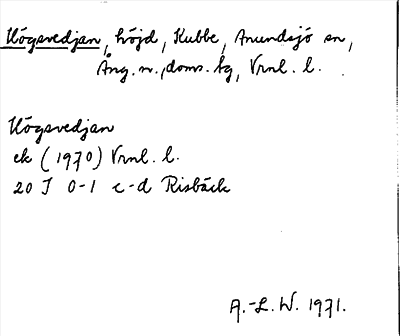 Högsvedjan, höjd, Kubbe, Anundsjö sn,
Ång. n., doms. tg, Vrnl. l.
Högsvedjan
ek (1970) Vrnl. l.
20 I 0-1 c-d Risbäck
A.-L. W. 1971.